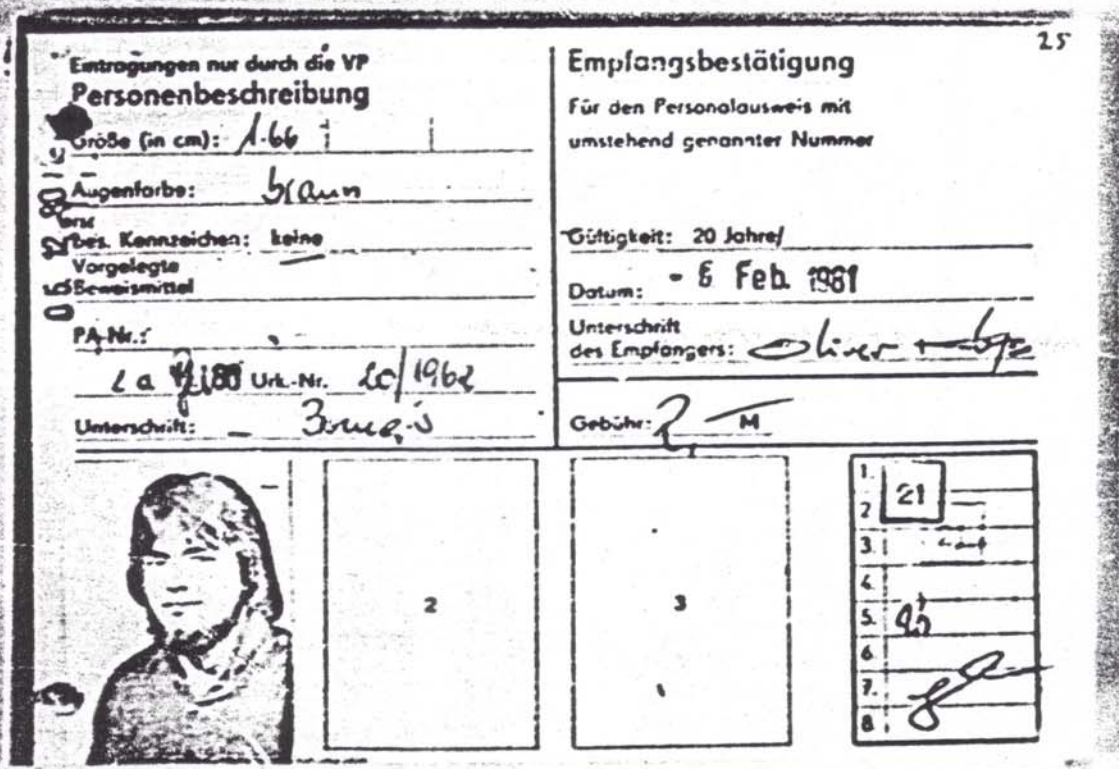 25
Eintragungen nur durch die VP
Personenbeschreibung
Größe (in cm): 1.66
Augenfarbe: braun
bes. Kennzeichen: keine
Vorgelegte
Beweismittel
PA-Nr.:
Urk.-Nr. 20/1962
Unterschrift:
Empfangsbestätigung
Für den Personalausweis mit
umstehend genannter Nummer
Gültigkeit: 20 Jahre/
Datum: - 6 Feb. 1981
Unterschrift
des Empfängers: Oliver
Gebühr: 2, — M
2
3
1.
21
2
3.
4.
5.
6.
7.
8